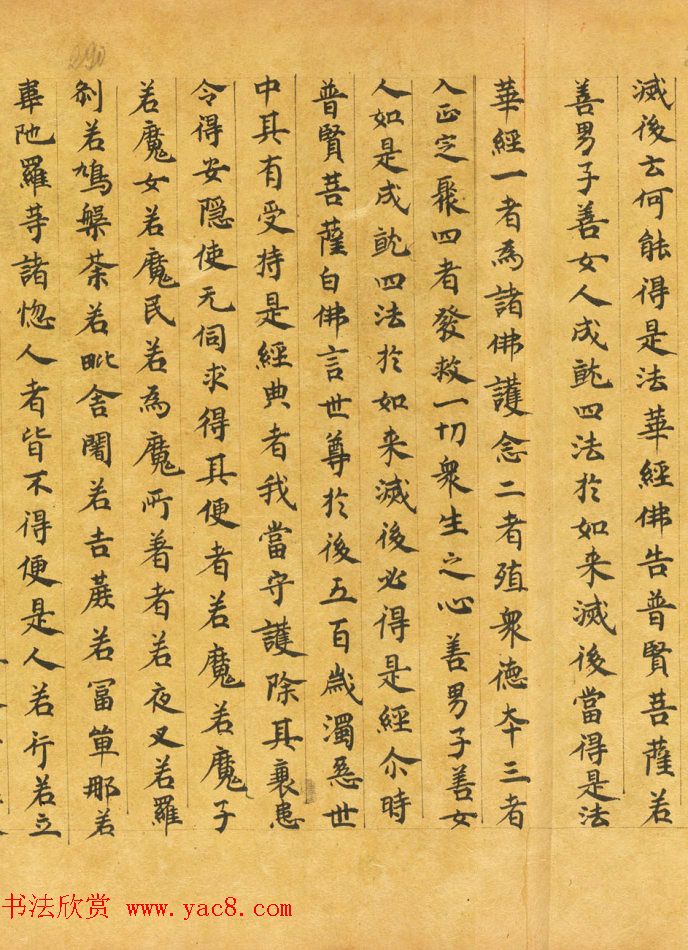 滅後云何能得是法華經佛告普賢菩薩若
善男子善女人成就四法於如来滅後當得是法
華經一者為諸佛護念二者殖衆德本三者
入正定聚四者發救一切衆生之心善男子善女
人如是成就四法於如来滅後必得是經尒時
普賢菩薩白佛言世尊於後五百歲濁惡世
中其有受持是經典者我當守護除其衰患
令得安隱使无伺求得其便者若魔若魔子
若魔女若魔民若為魔所著者若夜叉若羅
剎若鳩槃荼若毗舍闍若吉蔗若冨單那若
韋陁羅等諸惱人者皆不得便是人若行若立
290
书法欣赏 www.yac8.com